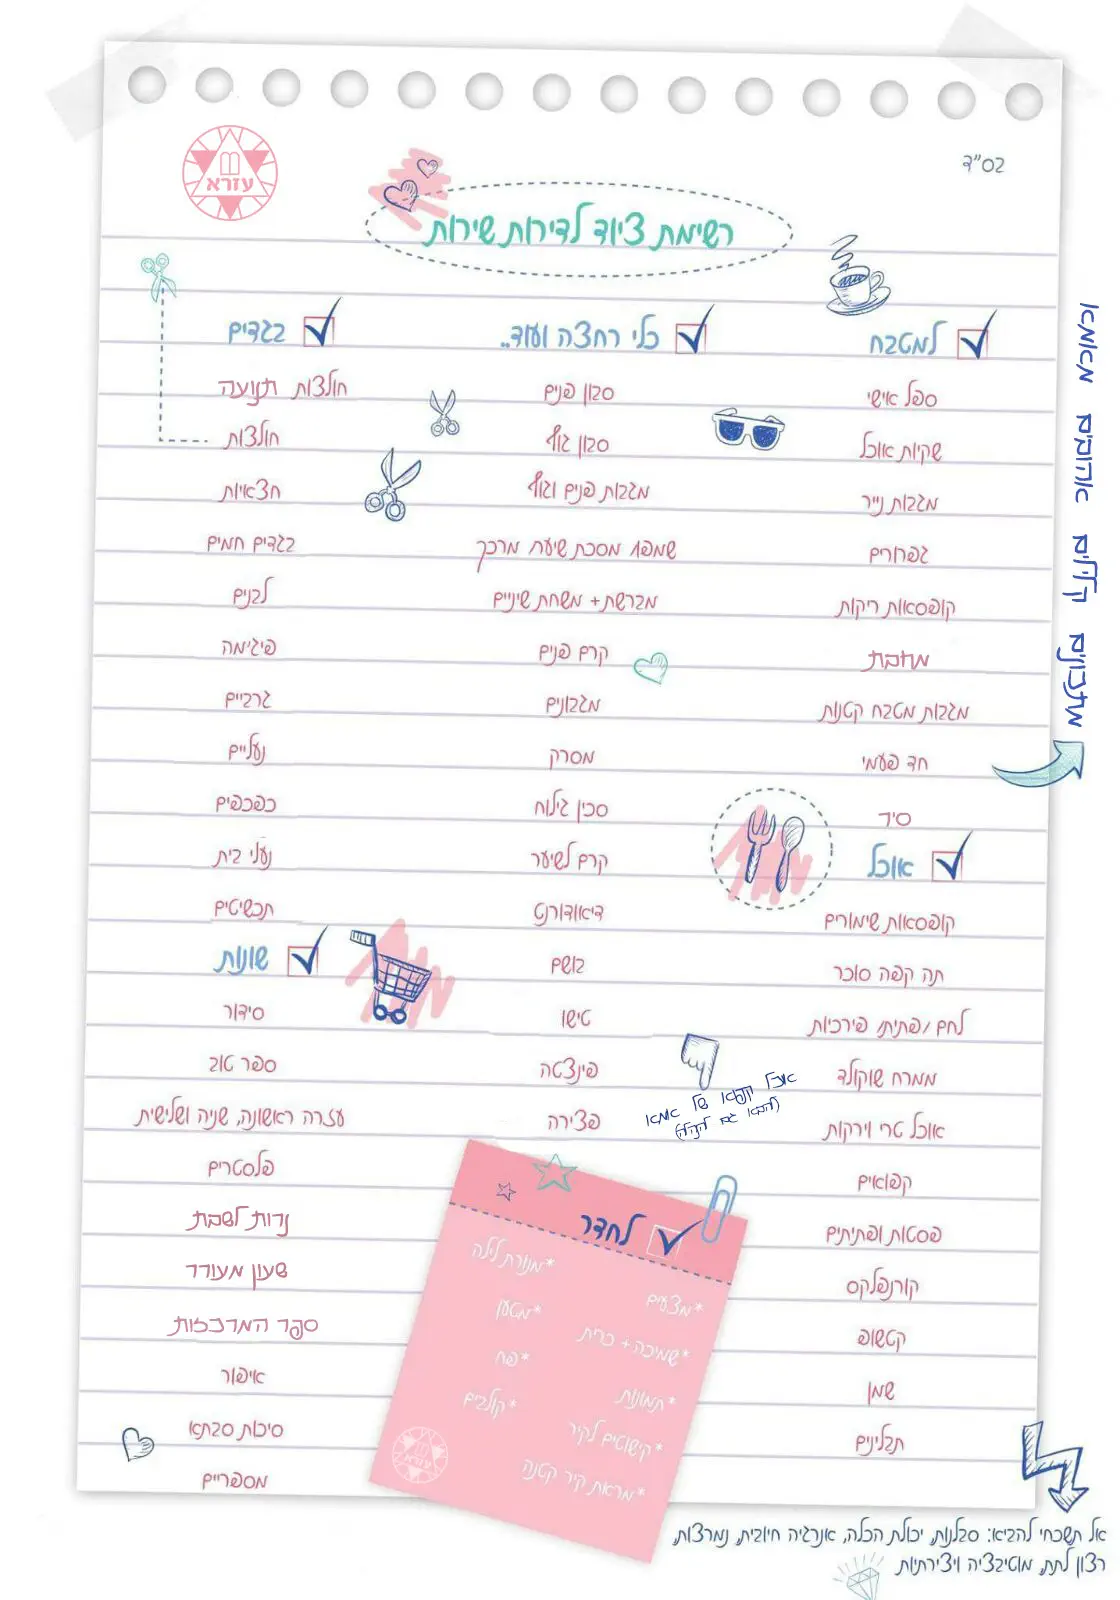 בס"ד
עזרא
רשימת ציוד לדירות שירות
למטבח
ספל אישי
שקיות אוכל
מגבות נייר
גפרורים
קופסאות ריקות
מחבת
מגבות מטבח קטנות
חד פעמי
סיר
אוכל
קופסאות שימורים
תה קפה סוכר
לחם /פתיתי פירכיות
ממרח שוקולד
אוכל טרי וירקות
קפואים
פסטות ופתיתים
קורנפלקס
קטשופ
שמן
תבלינים
כלי רחצה ועוד..
סבון פנים
סבון גוף
מגבות פנים וגוף
שמפו מסכת שיער מרכך
מברשת + משחת שיניים
קרם פנים
מגבונים
מסרק
סכין גילוח
קרם לשיער
דיאודורנט
בושם
טישו
פינצטה
פצירה
אוכל קפוא של אמא
(להביא גם לקהילה)
בגדים
חולצות תנועה
חולצות
חצאיות
בגדים חמים
לבנים
פיג'מה
גרביים
נעליים
כפכפים
נעלי בית
תכשיטים
שונות
סידור
ספר טוב
עזרה ראשונה, שניה ושלישית
פלסטרים
נרות לשבת
שעון מעורר
ספר המדכזות
איפור
סיכות סבתא
מספריים
לחדר
*מצעים
*שמיכה + כרית
*תמונות
*קישוטים לקיר
*מראת קיר קטנה
*מנורת לילה
*מטען
*פח
*קולבים
עזרא
מתכונים קלילים אהובים מאמא
אל תשכחי להביא: סבלנות, יכולת הכלה, אנרגיה חיובית, נמרצות,
רצון לתת, מוטיבציה ויצירתיות